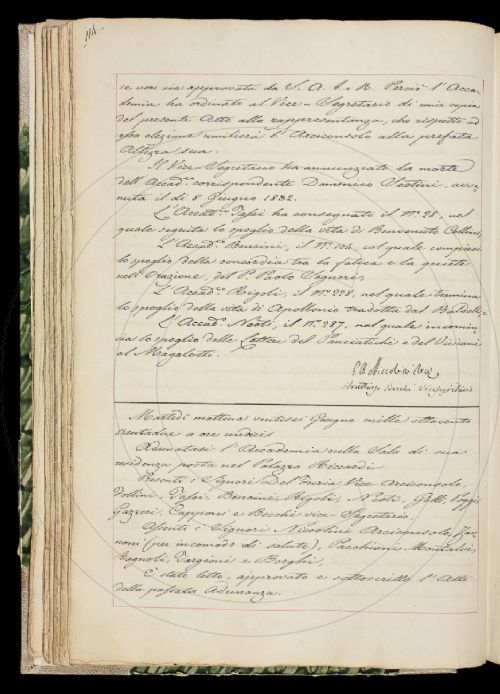 se non sia approvata da S. A. I. e R. Perciò l'Acca-
demia ha ordinato al Vice-Segretario di una copia
del presente Atto alla rappresentanza, che rispetto ad
essa elezione umilierà l'Arciconsolo alla prefata
Altezza sua.
Il Vice-Segretario ha annunziato la morte
dell'Accad.co corrispondente Domenico Sestini avve-
nuta il dì 8 Giugno 1832.
L'Accad.co Tassi ha consegnato il N.o 28, nel
quale seguita lo spoglio della vita di Benvenuto Cellini,
L'Accad.co Bencini, il N.o 104, col quale compisce
lo spoglio della concordia tra la fatica e la quiete
nell'Orazione, del P. Paolo Segneri,
L'Accad.co Rigoli, il N.o 228, nel quale termina
lo spoglio della vita di Apollonio tradotta dal Baldelli
L'Accad.co Nesti, il N.o 287, nel quale incomin-
cia lo spoglio delle Lettere del Panciatichi e del Viviani
al Magalotti.
Vicesegretario
Martedì mattina ventisei Giugno mille ottocento
trentadue a ore undici
Adunatasi l'Accademia nella Sala di sua
residenza posta nel Palazzo Riccardi
Presenti i Signori Del Furia, Vice-Arciconsolo,
Follini, Tassi, Bencini, Rigoli, Nesti, Gelli, Poggi
Gazzeri, Capponi e Becchi vice-Segretario
Assenti i Signori Niccolini Arciconsolo, Zan-
noni (per incomodo di salute), Pacchiani, Montalvi,
Bagnoli, Targioni e Borghi,
È stato letto, approvato e sottoscritto l'Atto
della passata Adunanza.